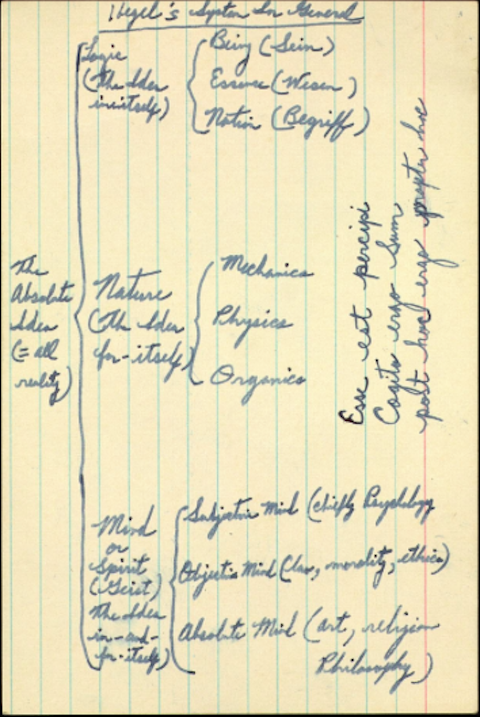 Hegel's System In General
The
Absolute
Idea
(= all
reality)
Logic
(The Idea
in-itself)
Being (Sein)
Essence (Wesen)
Notion (Begriff)
Nature
(The Idea
for-itself)
Mechanics
Physics
Organics
Mind
or
Spirit
(Geist)
The Idea
in-and-
for-itself)
Subjective Mind (chiefly Psychology
Objective Mind (law, morality, ethics)
Absolute Mind (art, religion
Philosophy)
Esse est percipi
Cogito ergo sum
post hoc ergo propter hoc